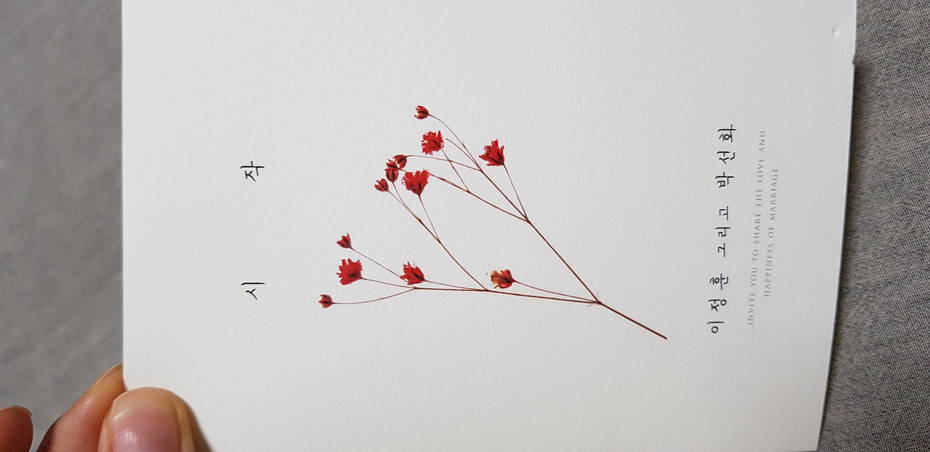 시 작
이정훈 그리고 박선화
INVITE YOU TO SHARE THE LOVE AND
HAPPINESS OF MARRIAGE.